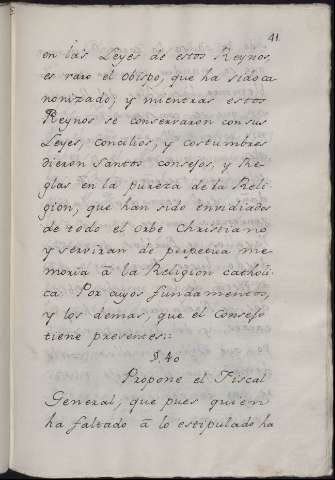 41
en las Leyes de estos Reynos,
es raro el obispo, que ha sido ca
nonizado; y mientras estos
Reynos se conservaron con sus
Leyes, concilios, y costumbres
dieron Santos consejos, y Re-
glas en la pureza de la Reli-
gion, que han sido envidiados
de todo el orbe Christiano
y serviran de perpetua me-
moria â la Religion catholi-
ca. Por cuyos fundamentos,
y los demas, que el Consejo
tiene presentes::
§. 40
Propone el Fiscal
General, que pues quien
ha faltado â lo estipulado ha